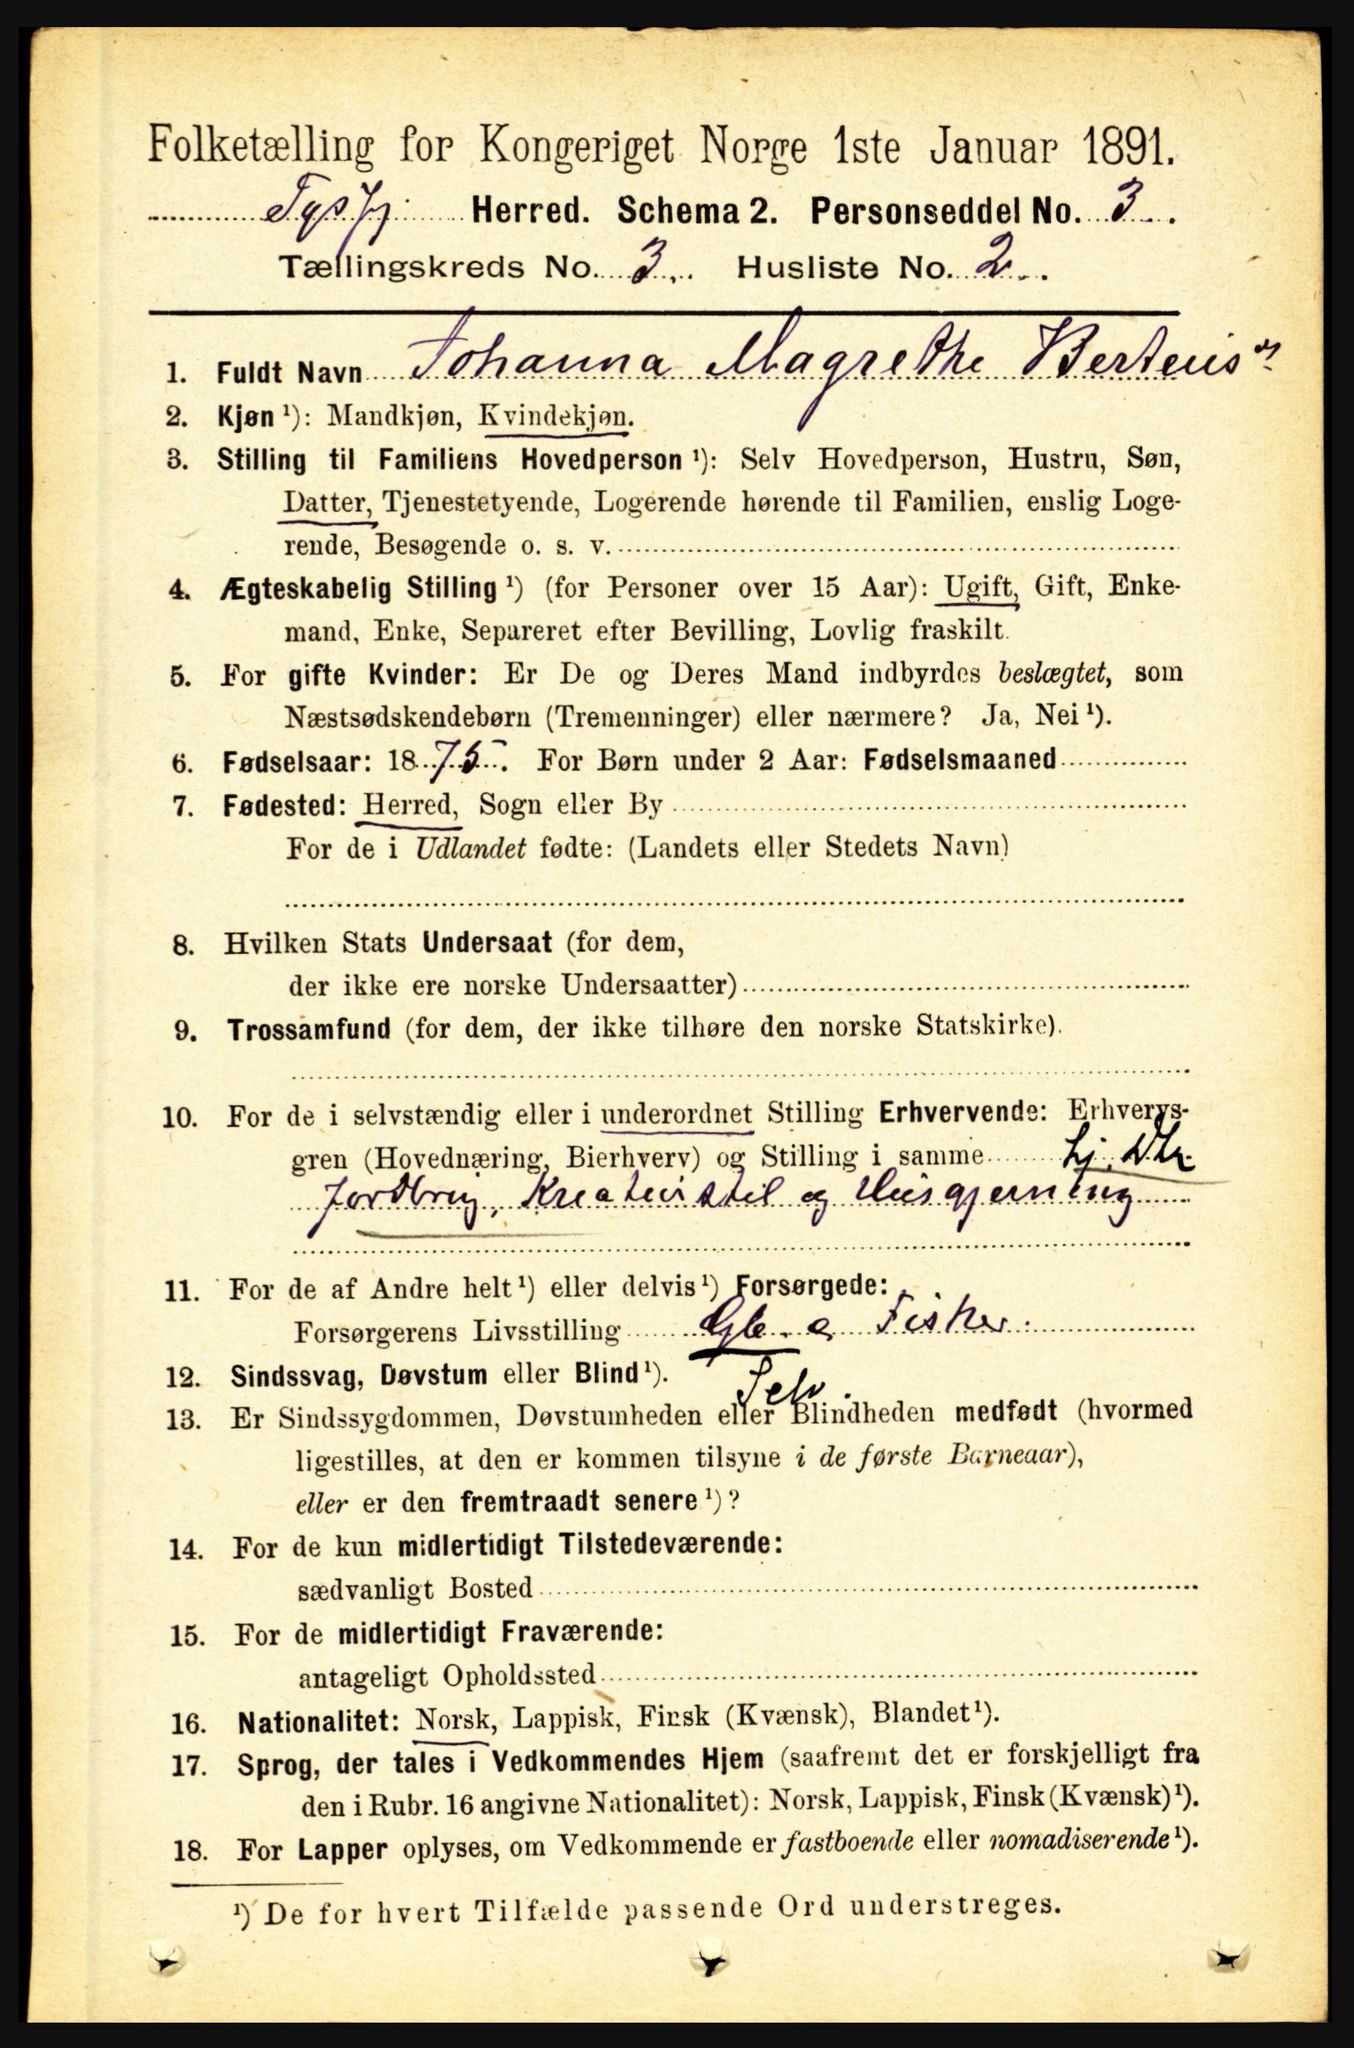 Folketælling for Kongeriget Norge 1ste Januar 1891.
Tysfj. Herred. Schema 2. Personseddel No. 3.
Tællingskreds No. 3. Husliste No. 2.
1. Fuldt Navn Johanna Magrethe Berteusd
2. Kjøn ¹): Mandkjøn, Kvindekjøn.
3. Stilling til Familiens Hovedperson ¹): Selv Hovedperson, Hustru, Søn,
Datter, Tjenestetyende, Logerende hørende til Familien, enslig Loge-
rende, Besøgende o. s. v.
4. Ægteskabelig Stilling ¹) (for Personer over 15 Aar): Ugift, Gift, Enke-
mand, Enke, Separeret efter Bevilling, Lovlig fraskilt.
5. For gifte Kvinder: Er De og Deres Mand indbyrdes beslægtet, som
Næstsødskendebørn (Tremenninger) eller nærmere? Ja, Nei ¹).
6. Fødselsaar: 1875. For Børn under 2 Aar: Fødselsmaaned
7. Fødested: Herred, Sogn eller By
For de i Udlandet fødte: (Landets eller Stedets Navn)
8. Hvilken Stats Undersaat (for dem,
der ikke ere norske Undersaatter)
9. Trossamfund (for dem, der ikke tilhøre den norske Statskirke).
10. For de i selvstændig eller i underordnet Stilling Erhvervende: Erhvervs-
gren (Hovednæring, Bierhverv) og Stilling i samme
Jordbrug, Kreaturstel og Husgjerning
11. For de af Andre helt ¹) eller delvis ¹) Forsørgede:
Forsørgerens Livsstilling Gb. o Fisker.
12. Sindssvag, Døvstum eller Blind ¹).
Selv.
13. Er Sindssygdommen, Døvstumheden eller Blindheden medfødt (hvormed
ligestilles, at den er kommen tilsyne i de første Barneaar),
eller er den fremtraadt senere ¹)?
14. For de kun midlertidigt Tilstedeværende:
sædvanligt Bosted
15. For de midlertidigt Fraværende:
antageligt Opholdssted
16. Nationalitet: Norsk, Lappisk, Finsk (Kvænsk), Blandet ¹).
17. Sprog, der tales i Vedkommendes Hjem (saafremt det er forskjelligt fra
den i Rubr. 16 angivne Nationalitet): Norsk, Lappisk, Finsk (Kvænsk) ¹).
18. For Lapper oplyses, om Vedkommende er fastboende eller nomadiserende ¹).
¹) De for hvert Tilfælde passende Ord understreges.